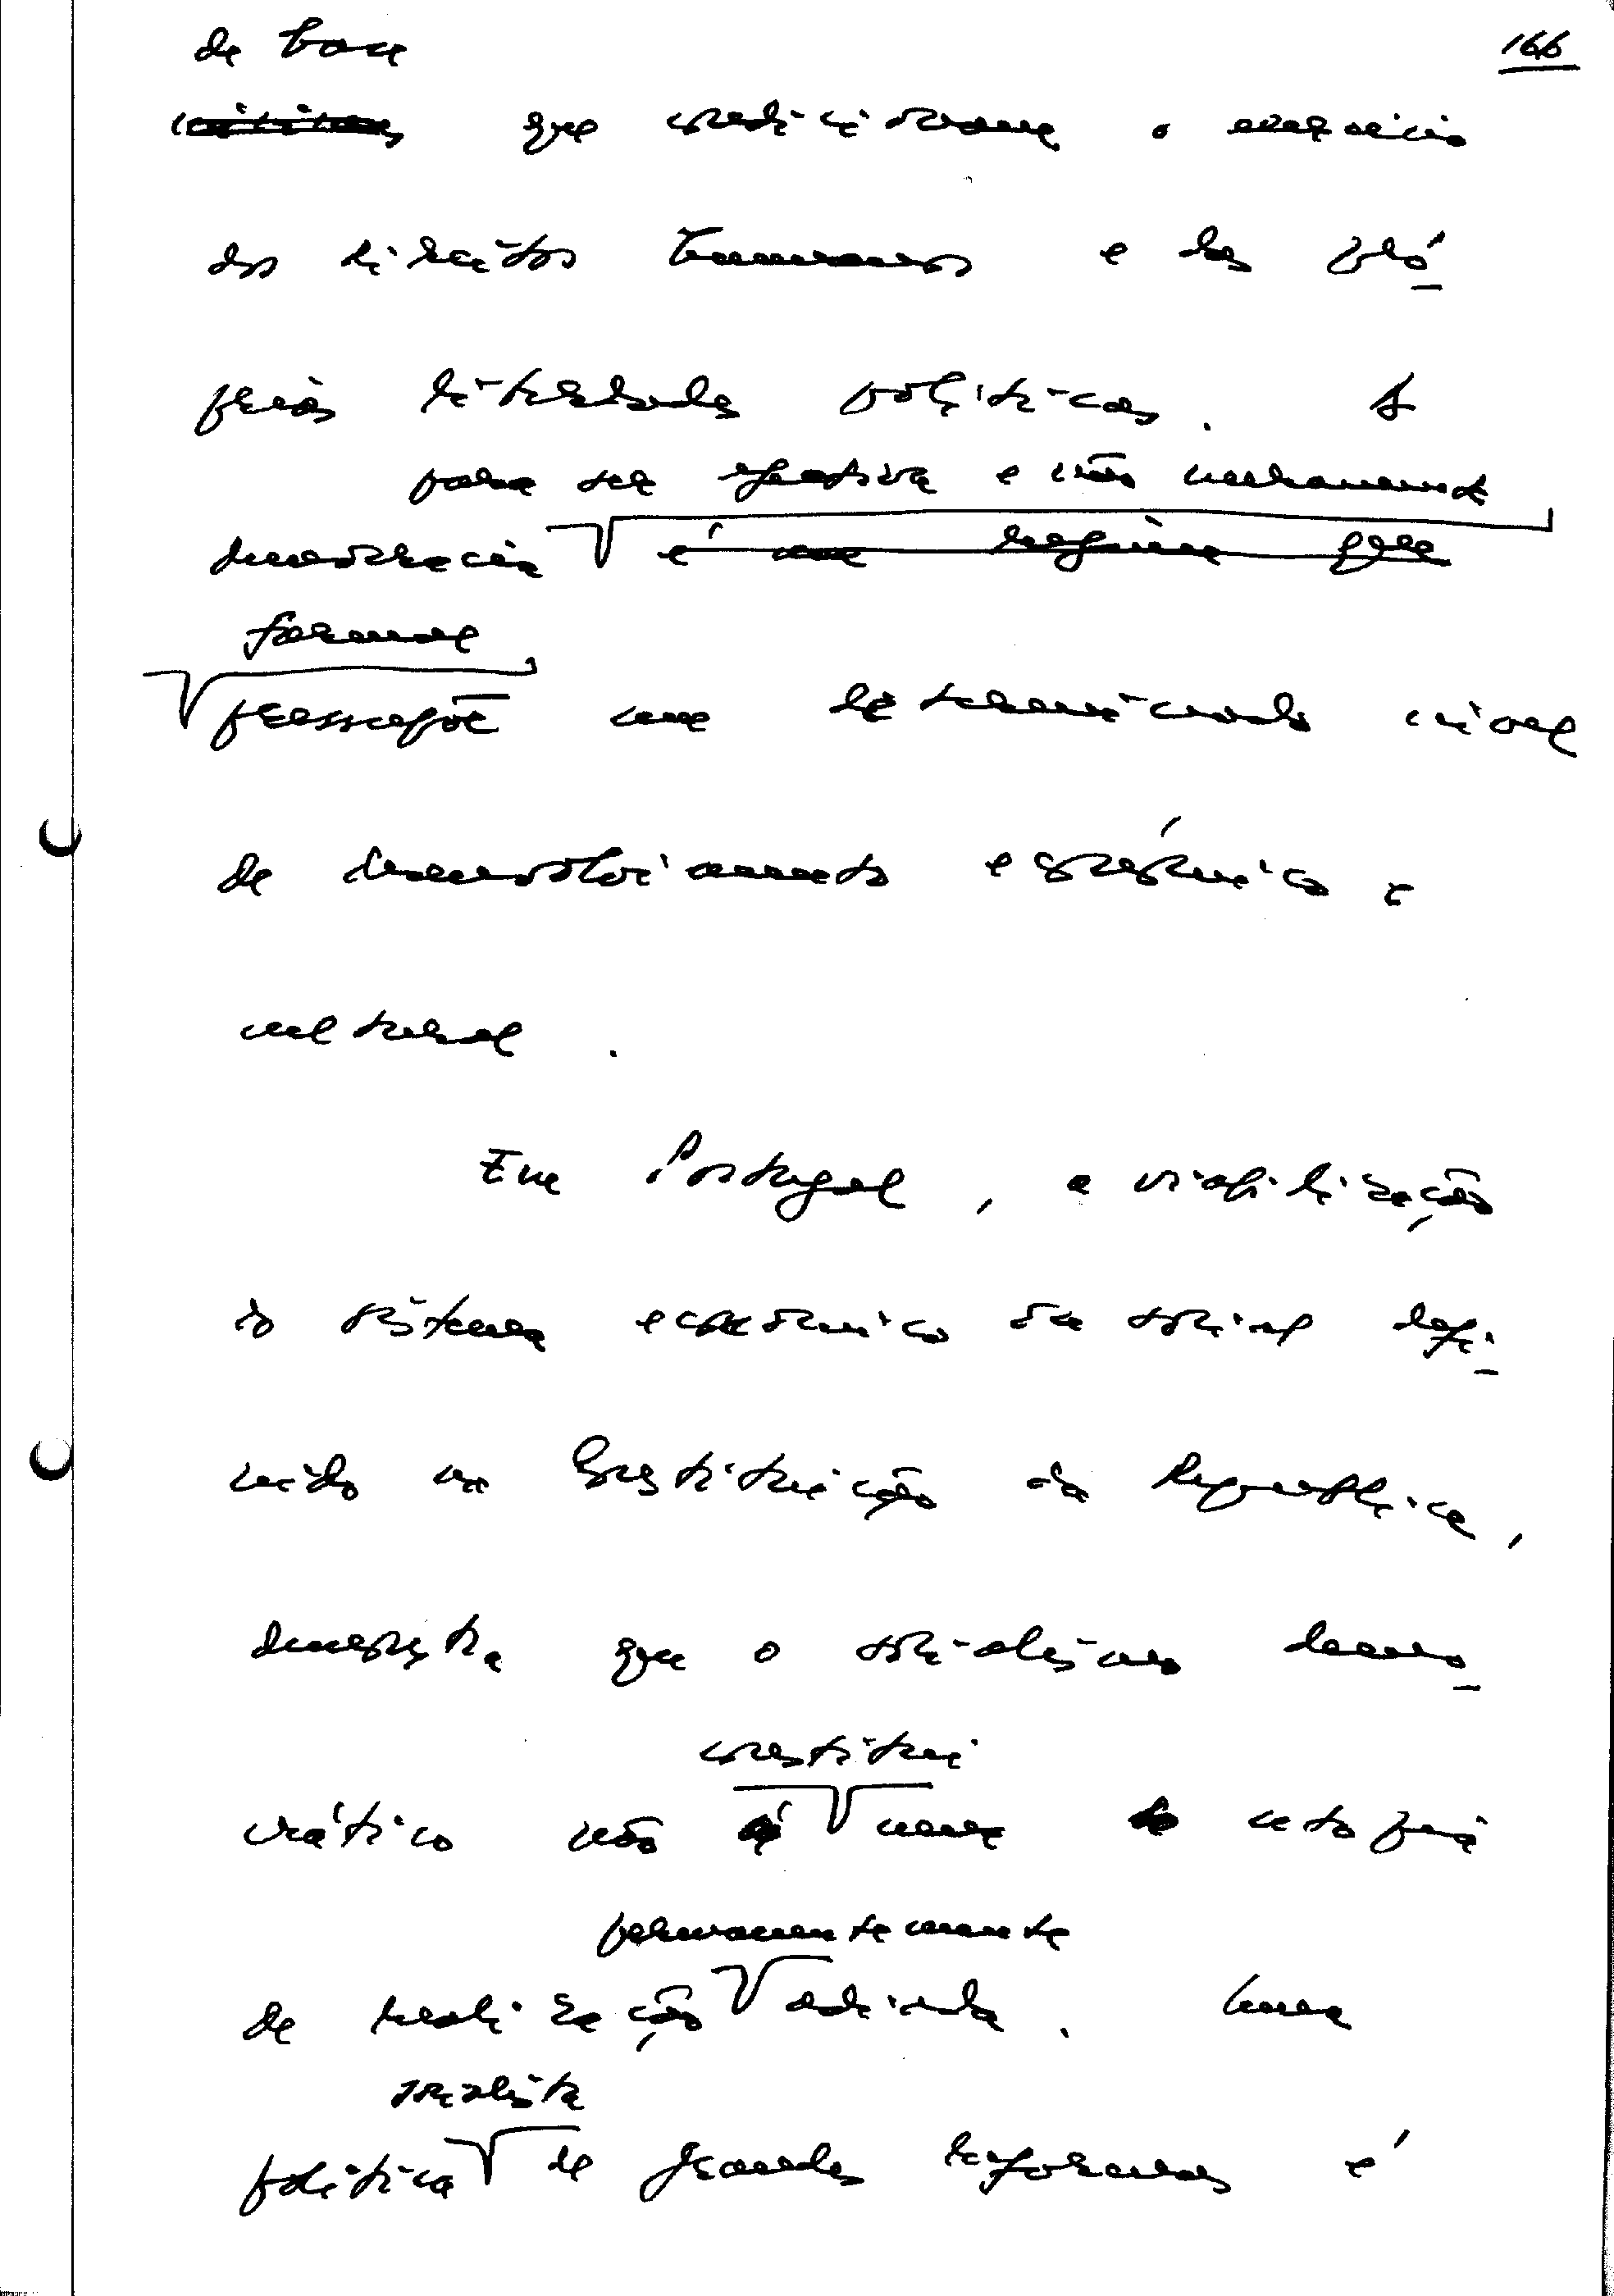 166
de base
que condicionam o exercício
dos direitos humanos e das pró-
prias liberdades políticas. A
para ser efectiva e não meramente
democracia é um regime que
formal
pressupõe um determinado nível
de desenvolvimento económico e
cultural.
Em Portugal, a viabilização
do sistema económico e social defi-
nido na Constituição da República,
demonstra que o socialismo demo-
constitui
crático não é uma utopia
permanentemente
de realização adiada. Uma
socialista
política de grandes reformas é